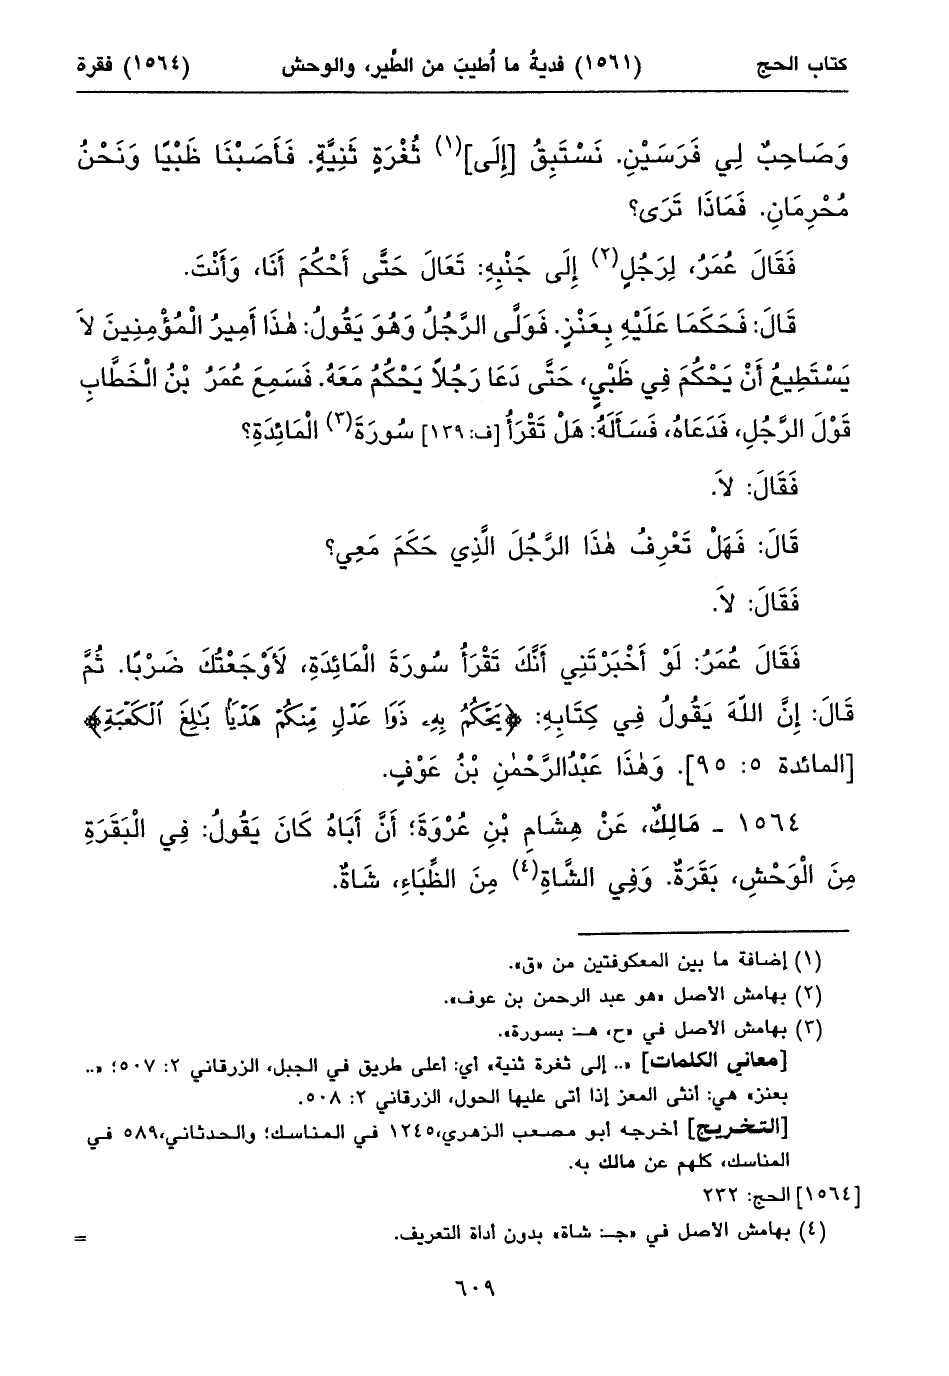 كتاب الحج (١٥٦١) فديةُ ما أُطيبَ من الطَّير، والوحش (١٥٦٤) فقرة
وَصَاحِبٌ لِي فَرَسَيْنِ. نَسْتَبِقُ [إِلَى](١) ثُغْرَةِ ثَنِيَّةٍ. فَأَصَبْنَا ظَبْيًا وَنَحْنُ
مُحْرِمَانِ. فَمَاذَا تَرَى؟
فَقَالَ عُمَرُ، لِرَجُلٍ(٢) إِلَى جَنْبِهِ: تَعَالَ حَتَّى أَحْكُمَ أَنَا، وَأَنْتَ.
قَالَ: فَحَكَمَا عَلَيْهِ بِعَنْزٍ. فَوَلَّى الرَّجُلُ وَهُوَ يَقُولُ: هٰذَا أَمِيرُ الْمُؤْمِنِينَ لاَ
يَسْتَطِيعُ أَنْ يَحْكُمَ فِي ظَبْيٍ، حَتَّى دَعَا رَجُلاً يَحْكُمُ مَعَهُ. فَسَمِعَ عُمَرُ بْنُ الْخَطَّابِ
قَوْلَ الرَّجُلِ، فَدَعَاهُ، فَسَأَلَهُ: هَلْ تَقْرَأُ [ف: ١٣٩] سُورَةَ(٣) الْمَائِدَةِ؟
فَقَالَ: لاَ.
قَالَ: فَهَلْ تَعْرِفُ هٰذَا الرَّجُلَ الَّذِي حَكَمَ مَعِي؟
فَقَالَ: لاَ.
فَقَالَ عُمَرُ: لَوْ أَخْبَرْتَنِي أَنَّكَ تَقْرَأُ سُورَةَ الْمَائِدَةِ، لَأَوْجَعْتُكَ ضَرْبًا. ثُمَّ
قَالَ: إِنَّ اللّهَ يَقُولُ فِي كِتَابِهِ: ﴿يَحْكُمُ بِهِۦ ذَوَا عَدْلٍ مِّنكُمْ هَدْيًۢا بَـٰلِغَ ٱلْكَعْبَةِ﴾
[المائدة ٥: ٩٥]. وَهٰذَا عَبْدُالرَّحْمٰنِ بْنُ عَوْفٍ.
١٥٦٤ - مَالِكٌ، عَنْ هِشَامِ بْنِ عُرْوَةَ؛ أَنَّ أَبَاهُ كَانَ يَقُولُ: فِي الْبَقَرَةِ
مِنَ الْوَحْشِ، بَقَرَةٌ. وَفِي الشَّاةِ(٤) مِنَ الظِّبَاءِ، شَاةٌ.
(١) إضافة ما بين المعكوفتين من «ق».
(٢) بهامش الأصل «هو عبد الرحمن بن عوف».
(٣) بهامش الأصل في «ح، هـ: بسورة».
[معاني الكلمات] «.. إلى ثغرة ثنية» أي: أعلى طريق في الجبل، الزرقاني ٢: ٥٠٧؛ «..
بعنز» هي: أنثى المعز إذا أتى عليها الحول، الزرقاني ٢: ٥٠٨.
[التخريج] أخرجه أبو مصعب الزهري،١٢٤٥ في المناسك؛ والحدثاني،٥٨٩ في
المناسك، كلهم عن مالك به.
[١٥٦٤] الحج: ٢٣٢
(٤) بهامش الأصل في «جـ: شاة» بدون أداة التعريف. =
٦٠٩